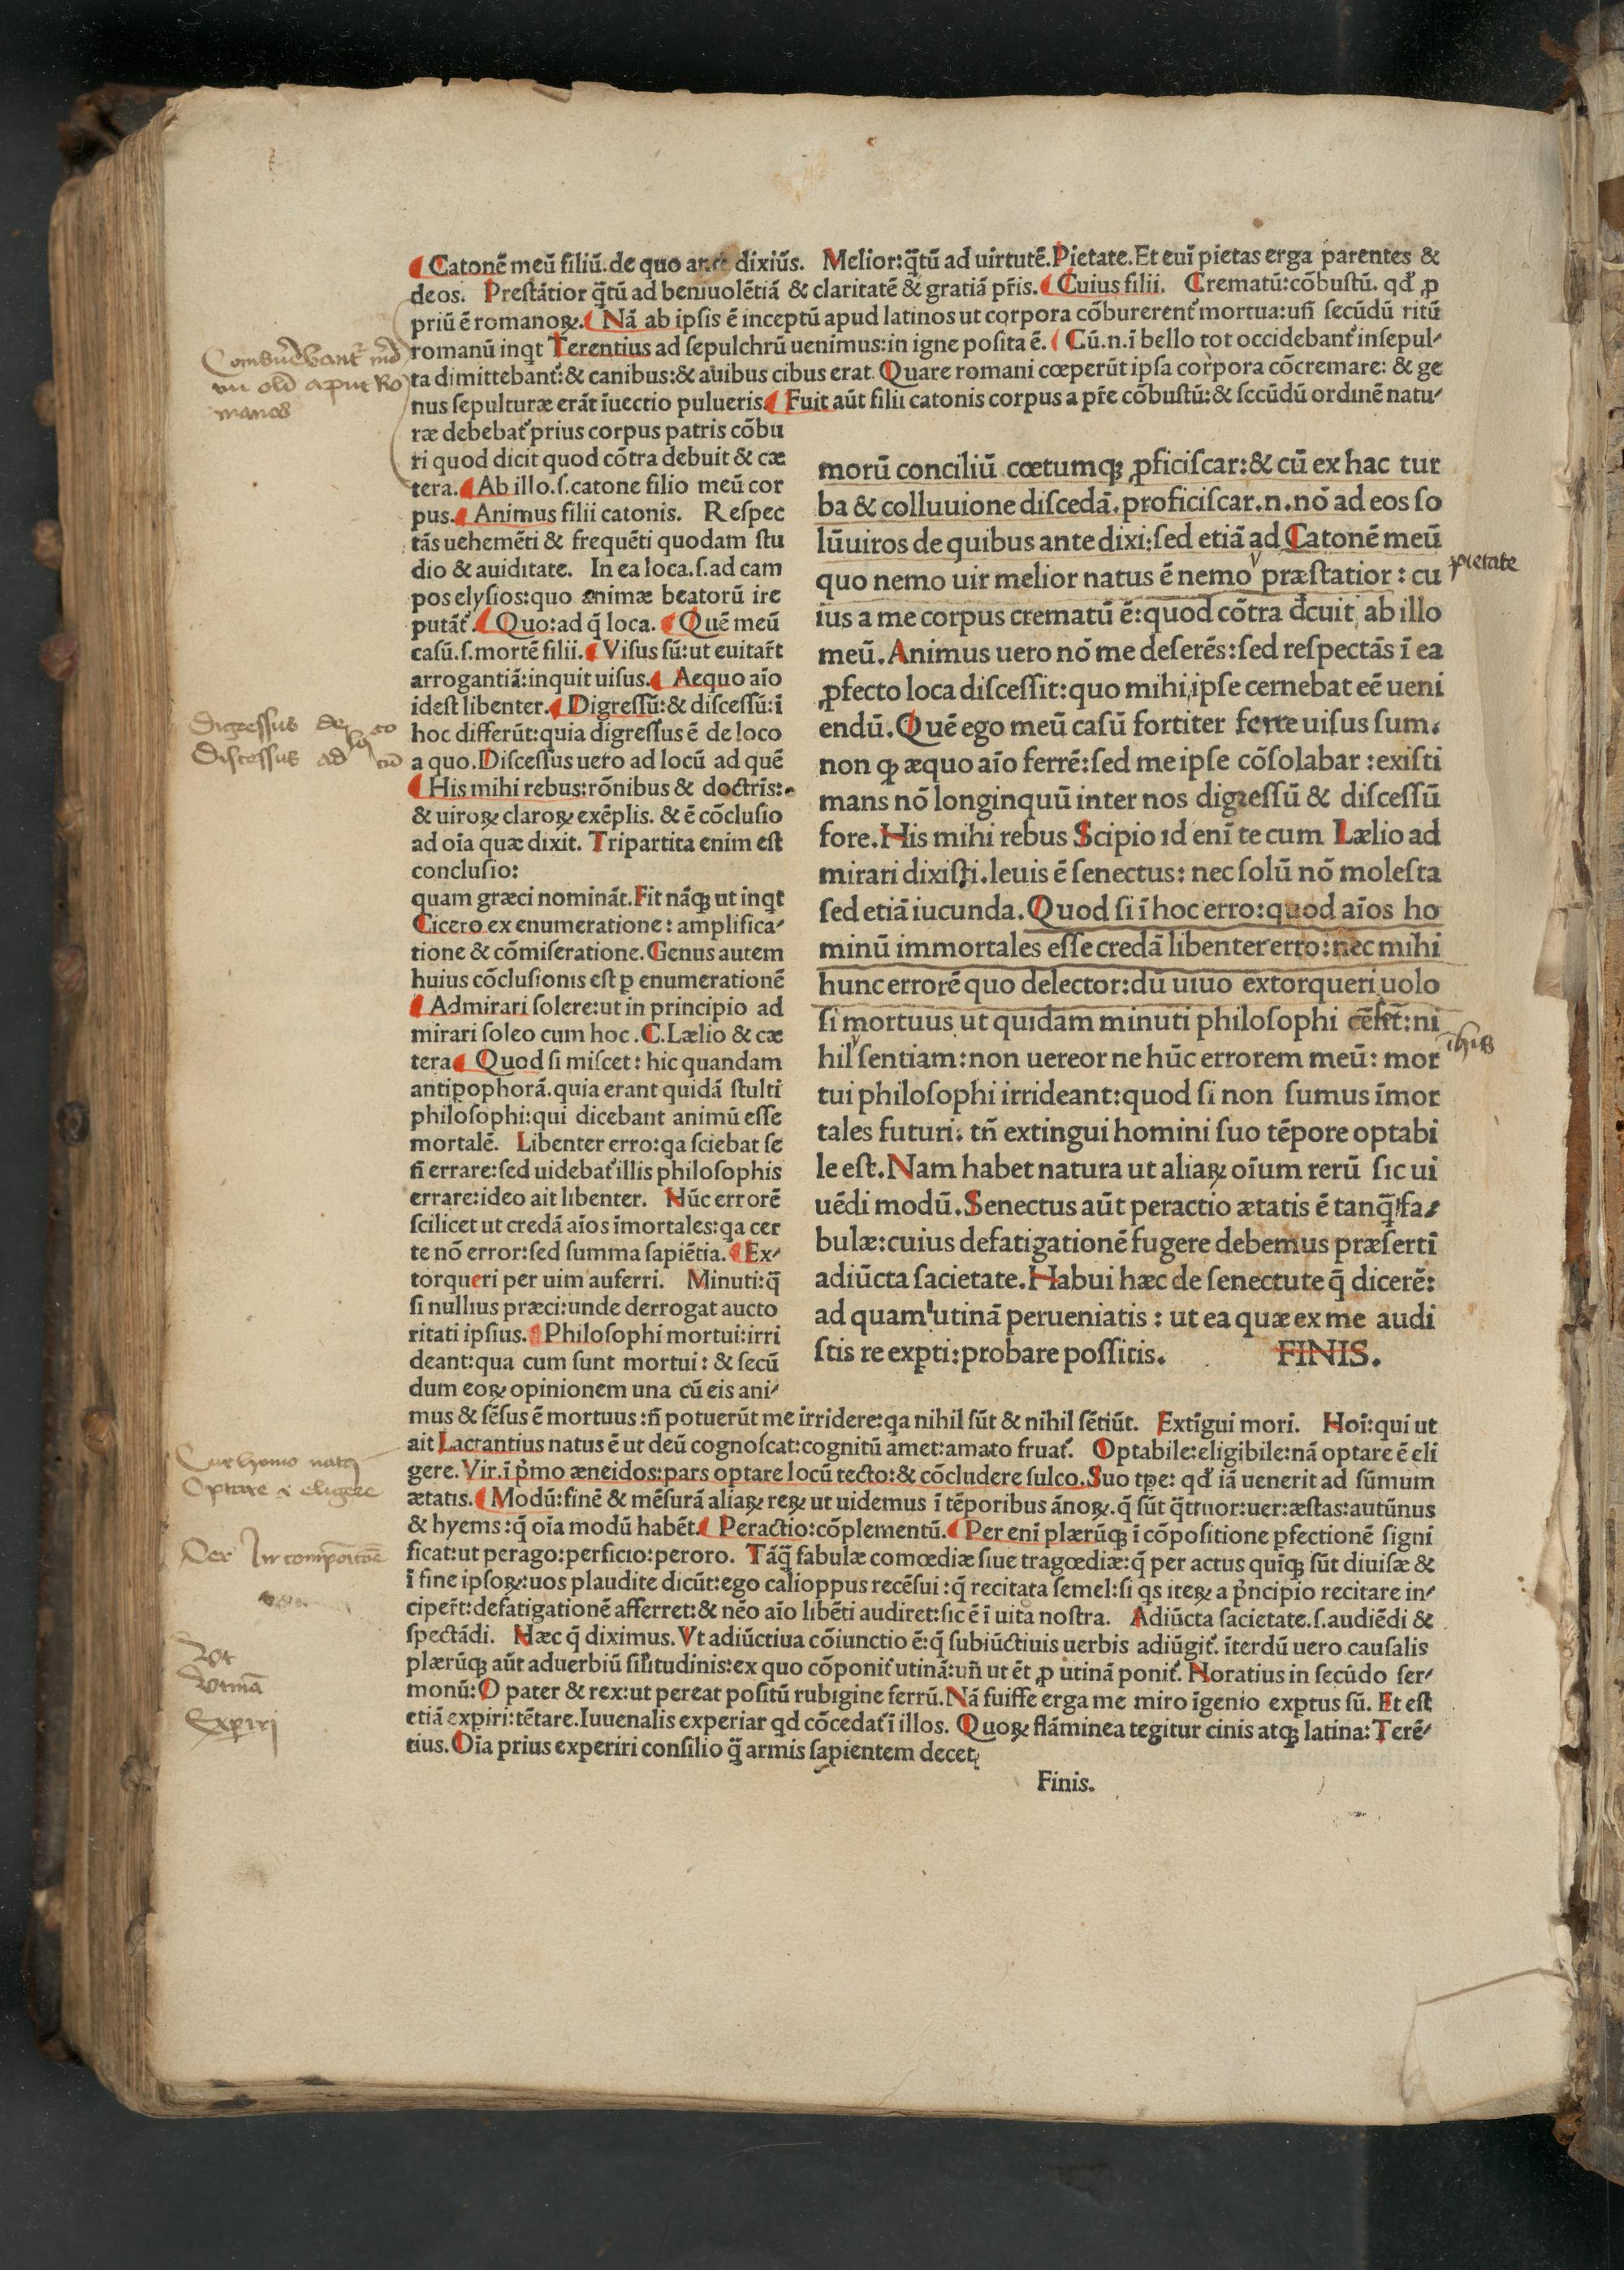 Catonē meū filiū. de quo ante dixiūs. Melior: q̄tū ad uirtutē. Pietate. Et eui pietas erga parentes &
deos. Prestātior q̄tū ad beniuolētiā & claritatē & gratiā p̄ris. Cuius filii. Crematū: cōbustū. qd' ꝓ
priū ē romanoꝝ. Nā ab ipsis ē inceptū apud latinos ut corpora cōburerent' mortua: uñ secūdū ritū
romanū inqt Terentius ad sepulchrū uenimus: in igne posita ē. Cū. n. ī bello tot occidebant' insepul-
ta dimittebant': & canibus: & auibus cibus erat. Quare romani cœperūt ipsa corpora cōcremare: & ge
nus sepulturæ erāt īuectio pulueris. Fuit aūt filii catonis corpus a p̄re cōbustū: & secūdū ordinē natu-
ræ debebat' prius corpus patris cōbu
ri quod dicit quod cōtra debuit & cæ
tera. Ab illo. s. catone filio meū cor
pus. Animus filii catonis. Respec
tās uehemēti & frequēti quodam stu
dio & auiditate. In ea loca. s. ad cam
pos elysios: quo animæ beatorū ire
putāt'. Quo: ad q̄ loca. Quē meū
casū. s. mortē filii. Visus sū: ut euitar̄t
arrogantiā: inquit uisus. Aequo aīo
idest libenter. Digressū: & discessū: ī
hoc differūt: quia digressus ē de loco
a quo. Discessus uero ad locū ad quē
His mihi rebus: rōnibus & doctrīs:
& uiroꝝ claroꝝ exēplis. & ē cōclusio
ad oīa quæ dixit. Tripartita enim est
conclusio:
quam græci nomināt. Fit nāqꝫ ut inqt
Cicero ex enumeratione: amplifica-
tione & cōmiseratione. Genus autem
huius cōclusionis est p enumerationē
Admirari solere: ut in principio ad
mirari soleo cum hoc. C. Lælio & cæ
tera Quod si miscet: hic quandam
antipophorā. quia erant quidā stulti
philosophi: qui dicebant animū esse
mortalē. Libenter erro: qa sciebat se
ñ errare: sed uidebat' illis philosophis
errare: ideo ait libenter. Nūc errorē
scilicet ut credā aīos īmortales: qa cer
te nō error: sed summa sapiētia. Ex-
torqueri per uim auferri. Minuti: q̄
si nullius præci: unde derrogat aucto
ritati ipsius. Philosophi mortui: irri
deant: qua cum sunt mortui: & secū
dum eoꝝ opinionem una cū eis ani-
morū conciliū cœtumqꝫ ꝓficiscar: & cū ex hac tur
ba & colluuione discedā. proficiscar. n. nō ad eos so
lū uiros de quibus ante dixi: sed etiā ad Catonē meū
quo nemo uir melior natus ē nemo præstatior: cu
ius a me corpus crematū ē: quod cōtra dcuit ab illo
meū. Animus uero nō me deserēs: sed respectās ī ea
ꝓfecto loca discessit: quo mihi ipse cernebat eē ueni
endū. Quē ego meū casū fortiter ferre uisus sum.
non qꝫ æquo aīo ferrē: sed me ipse cōsolabar: existi
mans nō longinquū inter nos digressū & discessū
fore. His mihi rebus Scipio id enī te cum Lælio ad
mirari dixisti. leuis ē senectus: nec solū nō molesta
sed etiā iucunda. Quod si ī hoc erro: quod aīos ho
minū immortales esse credā libenter erro: nec mihi
hunc errorē quo delector: dū uiuo extorqueri uolo
si mortuus ut quidam minuti philosophi cēsēt: ni
hil sentiam: non uereor ne hūc errorem meū: mor
tui philosophi irrideant: quod si non sumus īmor
tales futuri. tñ extingui homini suo tēpore optabi
le est. Nam habet natura ut aliaꝝ oīum rerū sic ui
uēdi modū. Senectus aūt peractio ætatis ē tanq̄ fa-
bulæ: cuius defatigationē fugere debemus præsertī
adiūcta sacietate. Habui hæc de senectute q̄ dicerē:
ad quam utinā perueniatis: ut ea quæ ex me audi
stis re expti: probare possitis. FINIS.
mus & sēsus ē mortuus: ñ potuerūt me irridere: qa nihil sūt & nihil sētiūt. Extīgui mori. Hoī: qui ut
ait Lactantius natus ē ut deū cognoscat: cognitū amet: amato fruat'. Optabile: eligibile: nā optare ē eli
gere. Vir. ī p̄mo æneidos: pars optare locū tecto: & cōcludere sulco. Suo tpe: qd' iā uenerit ad sūmum
ætatis. Modū: finē & mēsurā aliaꝝ reꝝ ut uidemus ī tēporibus ānoꝝ. q̄ sūt q̄ttuor: uer: æstas: autūnus
& hyems: q̄ oīa modū habēt. Peractio: cōplementū. Per enī plærūqꝫ ī cōpositione pfectionē signi
ficat: ut perago: perficio: peroro. Tāq̄ fabulæ comœdiæ siue tragœdiæ: q̄ per actus quīqꝫ sūt diuisæ &
ī fine ipsoꝝ: uos plaudite dicūt: ego calioppus recēsui: q̄ recitata semel: si qs iteꝝ a p̄ncipio recitare in-
cipēt: defatigationē afferret: & nēo aīo libēti audiret: sic ē ī uita nostra. Adiūcta sacietate. s. audiēdi &
spectādi. Hæc q̄ diximus. Vt adiūctiua cōiunctio ē: q̄ subiūctiuis uerbis adiūgit'. īterdū uero causalis
plærūqꝫ aūt aduerbiū sil'itudinis: ex quo cōponit' utinā: uñ ut ēt ꝓ utinā ponit'. Horatius in secūdo ser-
monū: O pater & rex: ut pereat positū rubigine ferrū. Nā fuisse erga me miro īgenio exptus sū. Et est
etiā expiri: tētare. Iuuenalis experiar qd cōcedat' ī illos. Quoꝝ flāminea tegitur cinis atqꝫ latina: Terē-
tius. Oīa prius experiri consilio q̄ armis sapientem decet.
Finis.
pietate
Digressus de loco
Discessus ad
Optare i eligere
Vt
Vtinā
Expiri